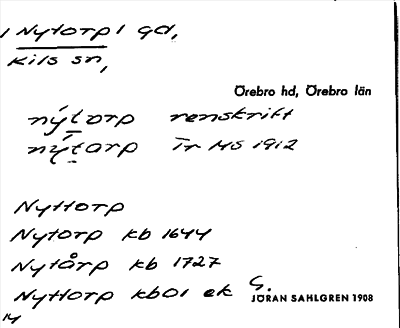 1 Nytorp1 gd,
Kils sn,
Örebro hd, Örebro län
nýtorp renskrift
nýtarp Tr MS 1912
Nyttorp
Nytorp kb 1644
Nytårp kb 1727
Nyttorp kb01 ek G.
JÖRAN SAHLGREN 1908
14